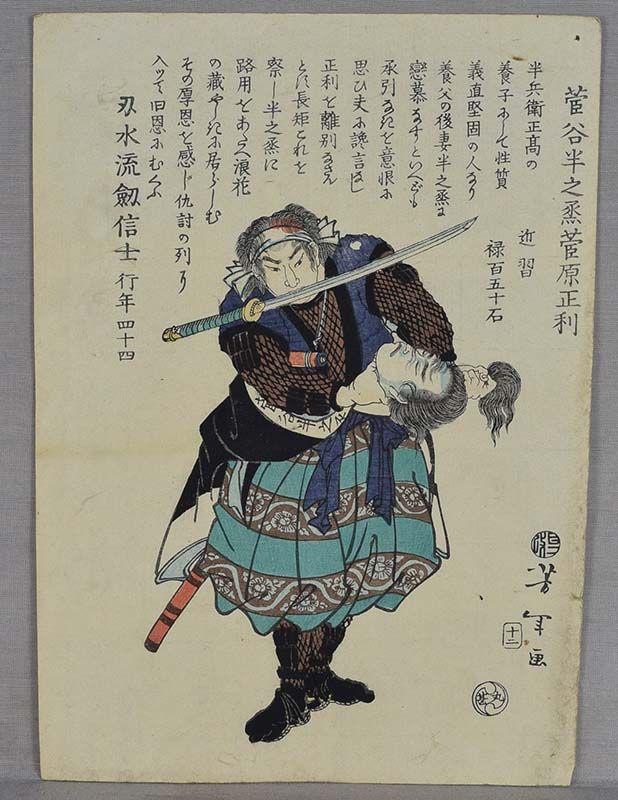 菅谷半之烝菅原正利
近習
禄百五十石
半兵衛正髙の
養子にして性質
義直堅固の人なり
養父の後妻半之烝に
戀慕なすといへども
承引なきを意恨に
思ひ夫に讒言なし
正利を離別なさん
とす長矩これを
察し半之烝に
路用をあたへ浪花
の藏やしきに居らしむ
その厚恩を感じ仇討の列に
入ツて旧恩にむくふ
刃水流劔信士 行年四十四
菅谷半之
芳年画
十二